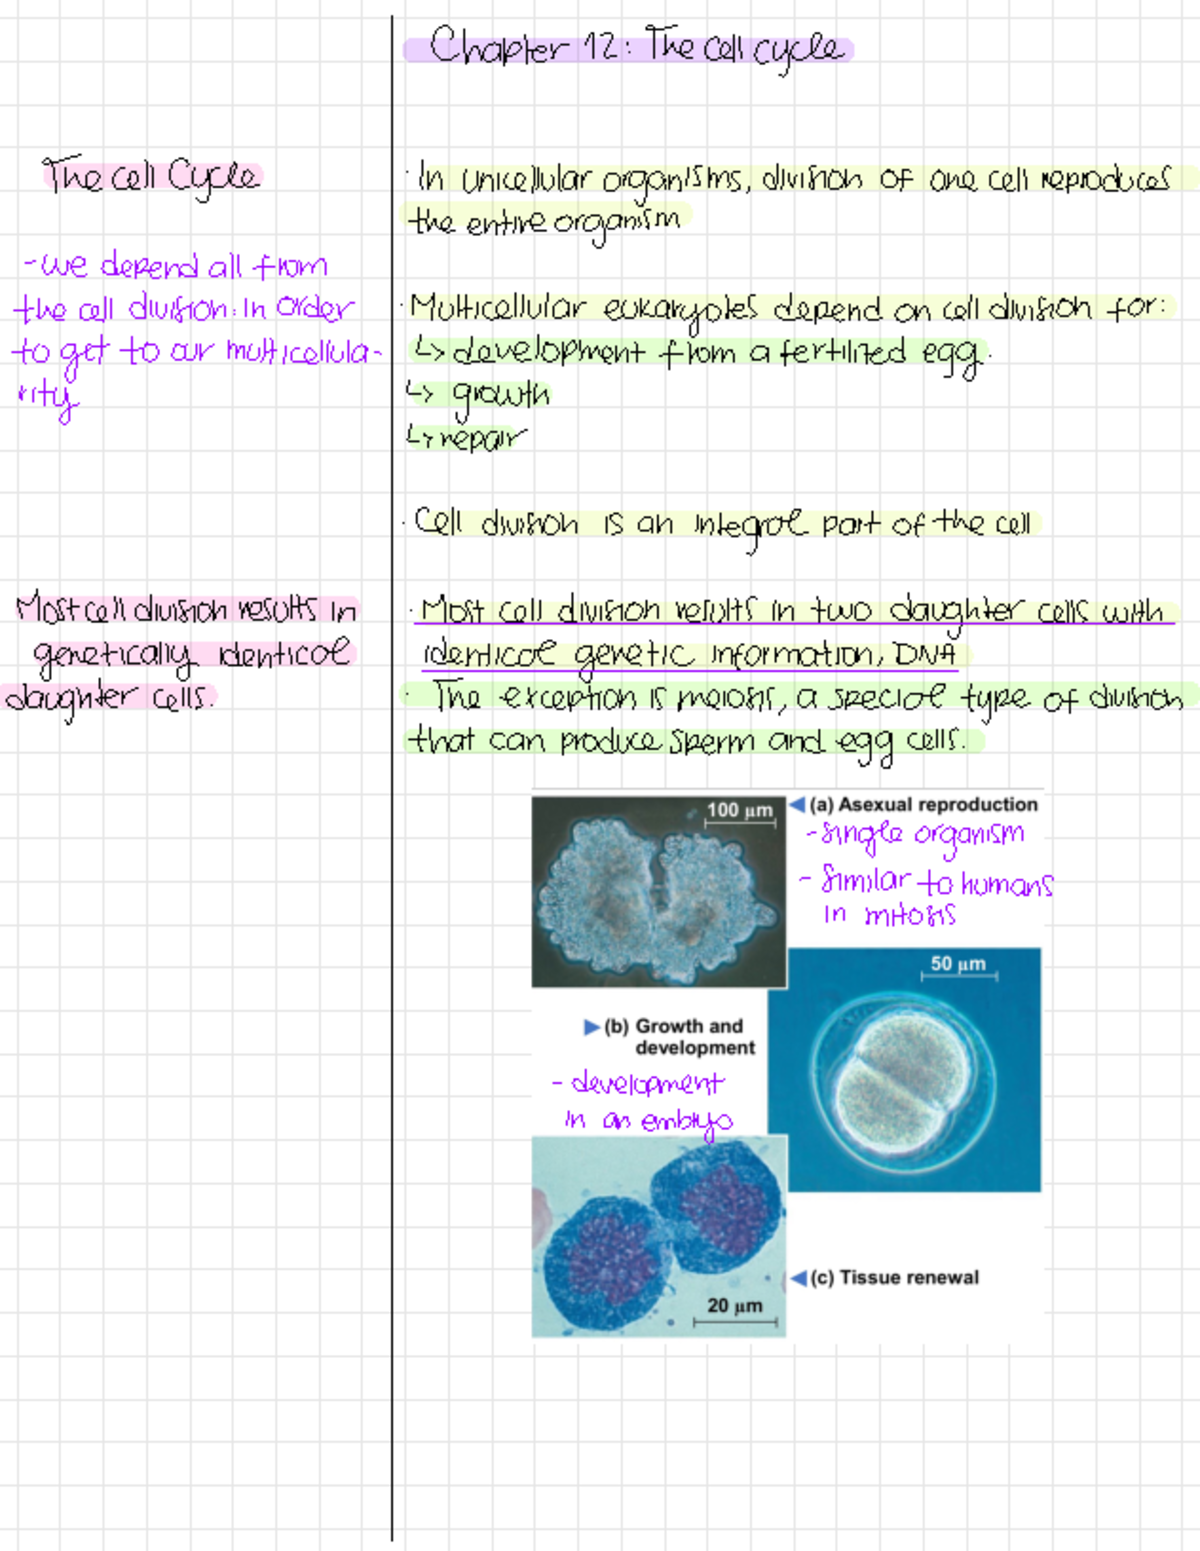 Chapter 12: The cell cycle
The cell Cycle
-we depend all from
the cell division. In order
to get to our multicellula-
rity
· In unicellular organisms, division of one cell reproduces
the entire organism
· Multicellular eukaryotes depend on cell division for:
↳ development from a fertilized egg.
↳ growth
↳ repair
· Cell division is an integral part of the cell
Most cell division results in
genetically identical
daughter cells.
· Most cell division results in two daughter cells with
identical genetic information, DNA
· The exception is meiosis, a special type of division
that can produce sperm and egg cells.
100 µm
◄ (a) Asexual reproduction
- single organism
- similar to humans
in mitosis
50 µm
► (b) Growth and
development
- development
in an embryo
◄ (c) Tissue renewal
20 µm